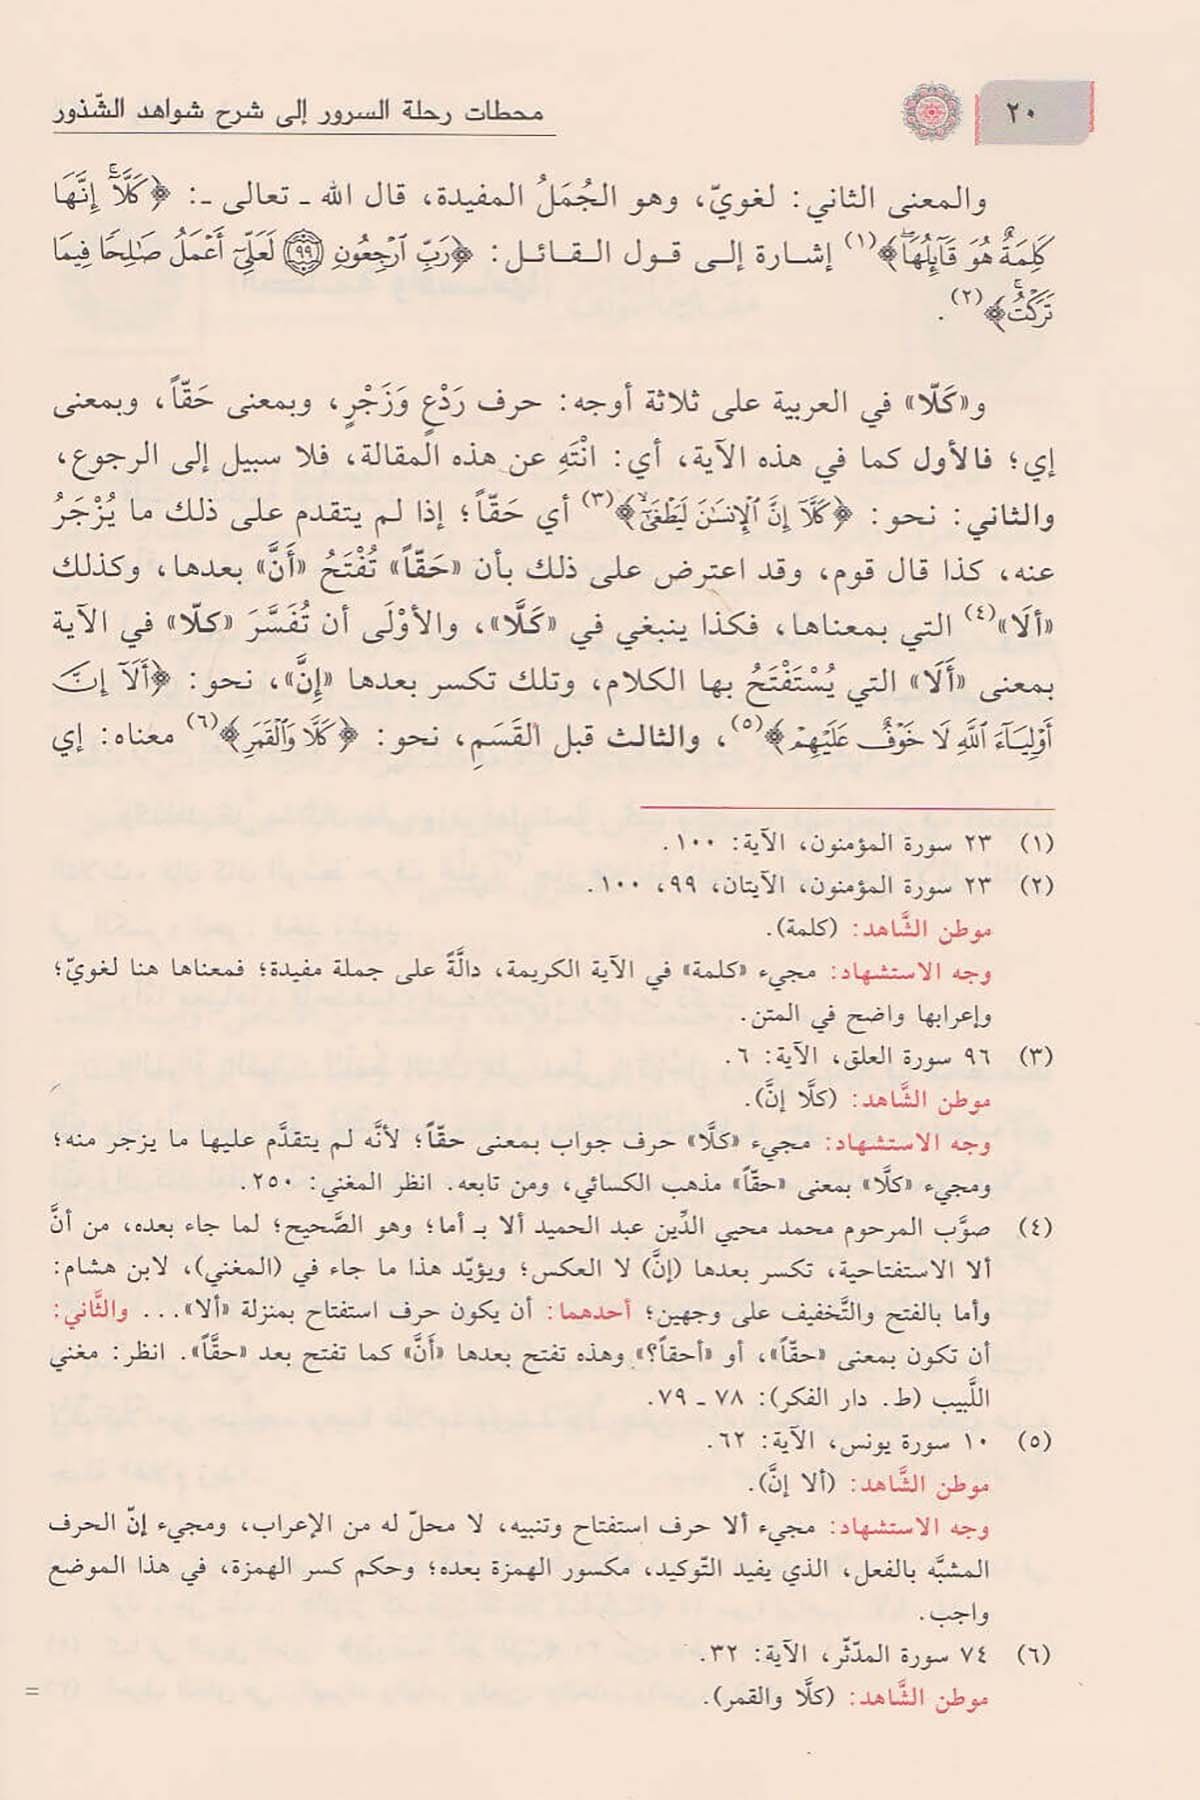 ٢٠
محطات رحلة السرور إلى شرح شواهد الشّذور
والمعنى الثاني: لغويّ، وهو الجُمَلُ المفيدة، قال الله ـ تعالى ـ: ﴿كَلَّآۚ إِنَّهَا
كَلِمَةٌ هُوَ قَآئِلُهَاۖ﴾(١) إشارة إلى قول القائل: ﴿رَبِّ ٱرۡجِعُونِ ٩٩ لَعَلِّيٓ أَعۡمَلُ صَٰلِحٗا فِيمَا
تَرَكۡتُۚ﴾(٢).
و«كَلّا» في العربية على ثلاثة أوجه: حرف رَدْعٍ وَزَجْرٍ، وبمعنى حَقّاً، وبمعنى
إي؛ فالأول كما في هذه الآية، أي: انْتَهِ عن هذه المقالة، فلا سبيل إلى الرجوع،
والثاني: نحو: ﴿كَلَّآ إِنَّ ٱلۡإِنسَٰنَ لَيَطۡغَىٰٓ﴾(٣) أي حَقّاً؛ إذا لم يتقدم على ذلك ما يُزْجَرُ
عنه، كذا قال قوم، وقد اعترض على ذلك بأن «حَقّاً» تُفْتَحُ «أَنَّ» بعدها، وكذلك
«ألَا»(٤) التي بمعناها، فكذا ينبغي في «كَلَّا»، والأوْلَى أن تُفَسَّرَ «كلّا» في الآية
بمعنى «أَلَا» التي يُسْتَفْتَحُ بها الكلام، وتلك تكسر بعدها «إِنَّ»، نحو: ﴿أَلَآ إِنَّ
أَوۡلِيَآءَ ٱللَّهِ لَا خَوۡفٌ عَلَيۡهِمۡ﴾(٥)، والثالث قبل القَسَمِ، نحو: ﴿كَلَّا وَٱلۡقَمَرِ﴾(٦) معناه: إي
(١) ٢٣ سورة المؤمنون، الآية: ١٠٠.
(٢) ٢٣ سورة المؤمنون، الآيتان، ٩٩، ١٠٠.
موطن الشَّاهد: (كلمة).
وجه الاستشهاد: مجيء «كلمة» في الآية الكريمة، دالَّةً على جملة مفيدة؛ فمعناها هنا لغويّ؛
وإعرابها واضح في المتن.
(٣) ٩٦ سورة العلق، الآية: ٦.
موطن الشَّاهد: (كلَّا إنَّ).
وجه الاستشهاد: مجيء «كلَّا» حرف جواب بمعنى حقّاً؛ لأنَّه لم يتقدَّم عليها ما يزجر منه؛
ومجيء «كلَّا» بمعنى «حقّاً» مذهب الكسائي، ومن تابعه. انظر المغني: ٢٥٠.
(٤) صوَّب المرحوم محمد محيي الدِّين عبد الحميد ألا بـ أما؛ وهو الصَّحيح؛ لما جاء بعده، من أنَّ
ألا الاستفتاحية، تكسر بعدها (إنَّ) لا العكس؛ ويؤيّد هذا ما جاء في (المغني)، لابن هشام:
وأما بالفتح والتَّخفيف على وجهين؛ أحدهما: أن يكون حرف استفتاح بمنزلة «ألا»... والثَّاني:
أن تكون بمعنى «حقّاً»، أو «أحقاً؟» وهذه تفتح بعدها «أَنَّ» كما تفتح بعد «حقَّاً». انظر: مغني
اللَّبيب (ط. دار الفكر): ٧٨ ـ ٧٩.
(٥) ١٠ سورة يونس، الآية: ٦٢.
موطن الشَّاهد: (ألا إنَّ).
وجه الاستشهاد: مجيء ألا حرف استفتاح وتنبيه، لا محلّ له من الإعراب، ومجيء إنّ الحرف
المشبَّه بالفعل، الذي يفيد التّوكيد، مكسور الهمزة بعده؛ وحكم كسر الهمزة، في هذا الموضع
واجب.
(٦) ٧٤ سورة المدّثّر، الآية: ٣٢.
موطن الشَّاهد: (كلَّا والقمر).
=